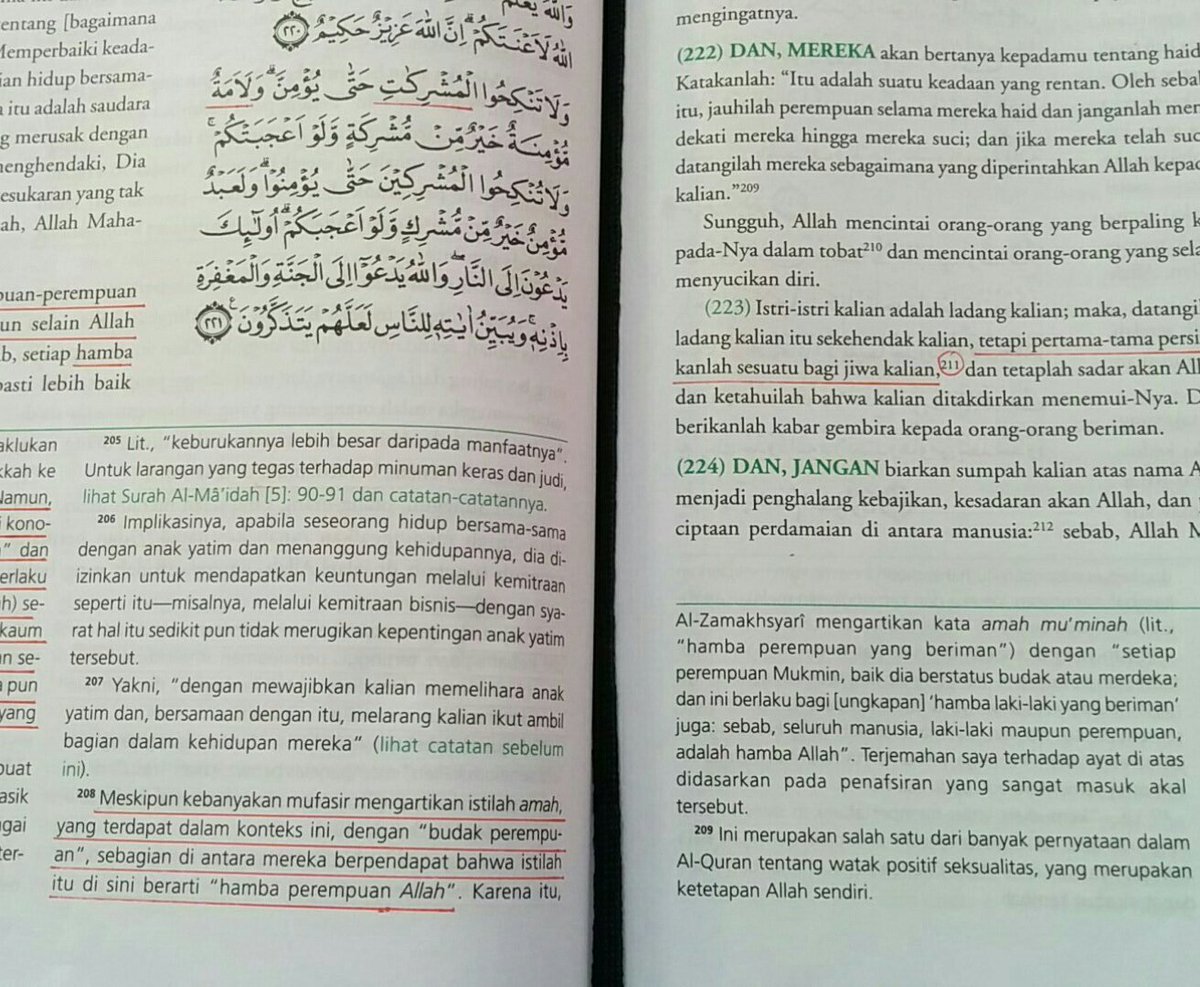 entang [bagaimana
Memperbaiki keada-
ian hidup bersama-
a itu adalah saudara
g merusak dengan
menghendaki, Dia
esukaran yang tak
ah, Allah Maha-
puan-perempuan
un selain Allah
b, setiap hamba
pasti lebih baik
وَاللّٰهُ يَعْلَمُ
اللّٰهُ لَاَعْنَتَكُمْ ۗ اِنَّ اللّٰهَ عَزِيْزٌ حَكِيْمٌ ﴿٢٢٠﴾
وَلَا تَنْكِحُوا الْمُشْرِكٰتِ حَتّٰى يُؤْمِنَّ ۗ وَلَاَمَةٌ
مُّؤْمِنَةٌ خَيْرٌ مِّنْ مُّشْرِكَةٍ وَّلَوْ اَعْجَبَتْكُمْ ۚ
وَلَا تُنْكِحُوا الْمُشْرِكِيْنَ حَتّٰى يُؤْمِنُوْا ۗ وَلَعَبْدٌ
مُّؤْمِنٌ خَيْرٌ مِّنْ مُّشْرِكٍ وَّلَوْ اَعْجَبَكُمْ ۗ اُولٰۤىِٕكَ
يَدْعُوْنَ اِلَى النَّارِ ۖ وَاللّٰهُ يَدْعُوْٓا اِلَى الْجَنَّةِ وَالْمَغْفِرَةِ
بِاِذْنِهٖ ۚ وَيُبَيِّنُ اٰيٰتِهٖ لِلنَّاسِ لَعَلَّهُمْ يَتَذَكَّرُوْنَ ﴿٢٢١﴾
aklukan
kkah ke
Namun,
i kono-
" dan
erlaku
h) se-
kaum
n se-
a pun
yang
buat
asik
gai
ter-
205 Lit., "keburukannya lebih besar daripada manfaatnya".
Untuk larangan yang tegas terhadap minuman keras dan judi,
lihat Surah Al-Mâ'idah [5]: 90-91 dan catatan-catatannya.
206 Implikasinya, apabila seseorang hidup bersama-sama
dengan anak yatim dan menanggung kehidupannya, dia di-
izinkan untuk mendapatkan keuntungan melalui kemitraan
seperti itu—misalnya, melalui kemitraan bisnis—dengan sya-
rat hal itu sedikit pun tidak merugikan kepentingan anak yatim
tersebut.
207 Yakni, "dengan mewajibkan kalian memelihara anak
yatim dan, bersamaan dengan itu, melarang kalian ikut ambil
bagian dalam kehidupan mereka" (lihat catatan sebelum
ini).
208 Meskipun kebanyakan mufasir mengartikan istilah amah,
yang terdapat dalam konteks ini, dengan "budak perempu-
an", sebagian di antara mereka berpendapat bahwa istilah
itu di sini berarti "hamba perempuan Allah". Karena itu,
mengingatnya.
(222) DAN, MEREKA akan bertanya kepadamu tentang haid
Katakanlah: "Itu adalah suatu keadaan yang rentan. Oleh seba
itu, jauhilah perempuan selama mereka haid dan janganlah men
dekati mereka hingga mereka suci; dan jika mereka telah suc
datangilah mereka sebagaimana yang diperintahkan Allah kepad
kalian."209
Sungguh, Allah mencintai orang-orang yang berpaling k
pada-Nya dalam tobat210 dan mencintai orang-orang yang sela
menyucikan diri.
(223) Istri-istri kalian adalah ladang kalian; maka, datangi
ladang kalian itu sekehendak kalian, tetapi pertama-tama persi
kanlah sesuatu bagi jiwa kalian,211 dan tetaplah sadar akan All
dan ketahuilah bahwa kalian ditakdirkan menemui-Nya. D
berikanlah kabar gembira kepada orang-orang beriman.
(224) DAN, JANGAN biarkan sumpah kalian atas nama A
menjadi penghalang kebajikan, kesadaran akan Allah, dan
ciptaan perdamaian di antara manusia:212 sebab, Allah M
Al-Zamakhsyarî mengartikan kata amah mu'minah (lit.,
"hamba perempuan yang beriman") dengan "setiap
perempuan Mukmin, baik dia berstatus budak atau merdeka;
dan ini berlaku bagi [ungkapan] 'hamba laki-laki yang beriman'
juga: sebab, seluruh manusia, laki-laki maupun perempuan,
adalah hamba Allah". Terjemahan saya terhadap ayat di atas
didasarkan pada penafsiran yang sangat masuk akal
tersebut.
209 Ini merupakan salah satu dari banyak pernyataan dalam
Al-Quran tentang watak positif seksualitas, yang merupakan
ketetapan Allah sendiri.